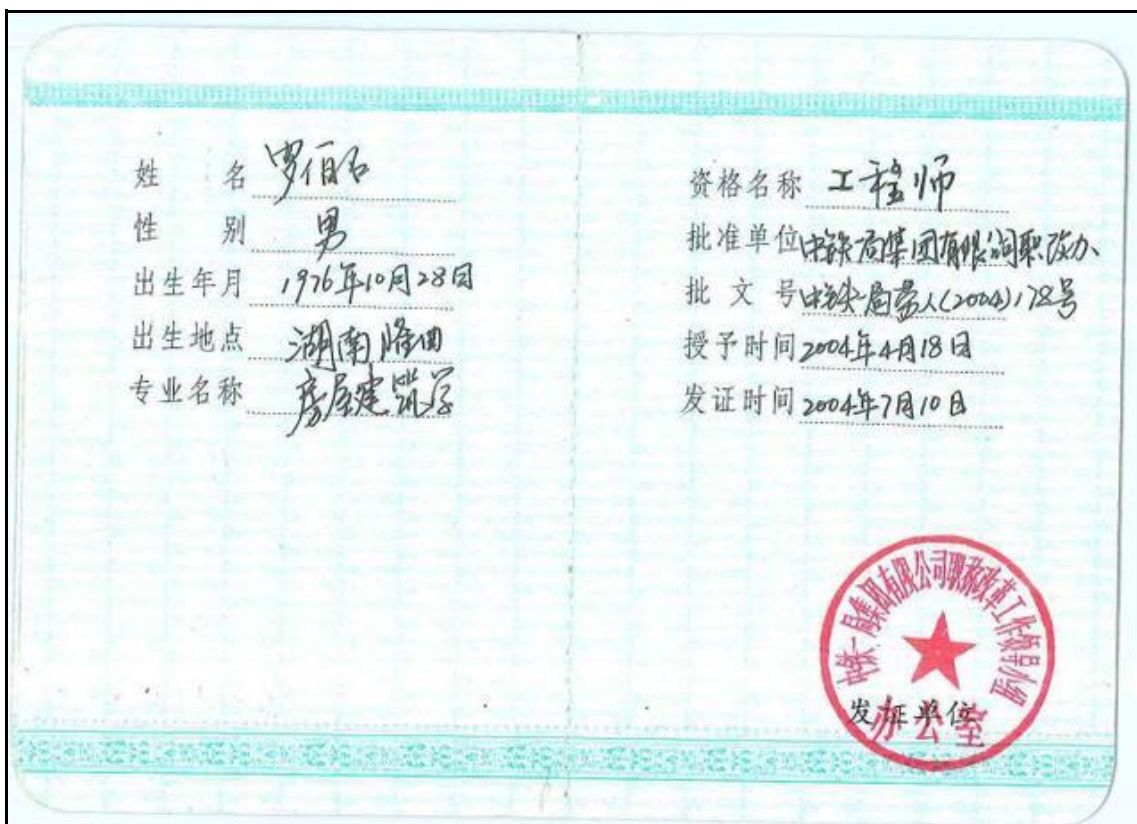 姓 名 罗伯石
性 别 男
出生年月 1976年10月28日
出生地点 湖南隆回
专业名称 房屋建筑学
资格名称 工程师
批准单位 中铁一局集团有限公司职改办
批文号 (2004)178号
授予时间 2004年4月18日
发证时间 2004年7月10日
中铁一局集团有限公司职称改革工作领导小组
办公室
发证单位